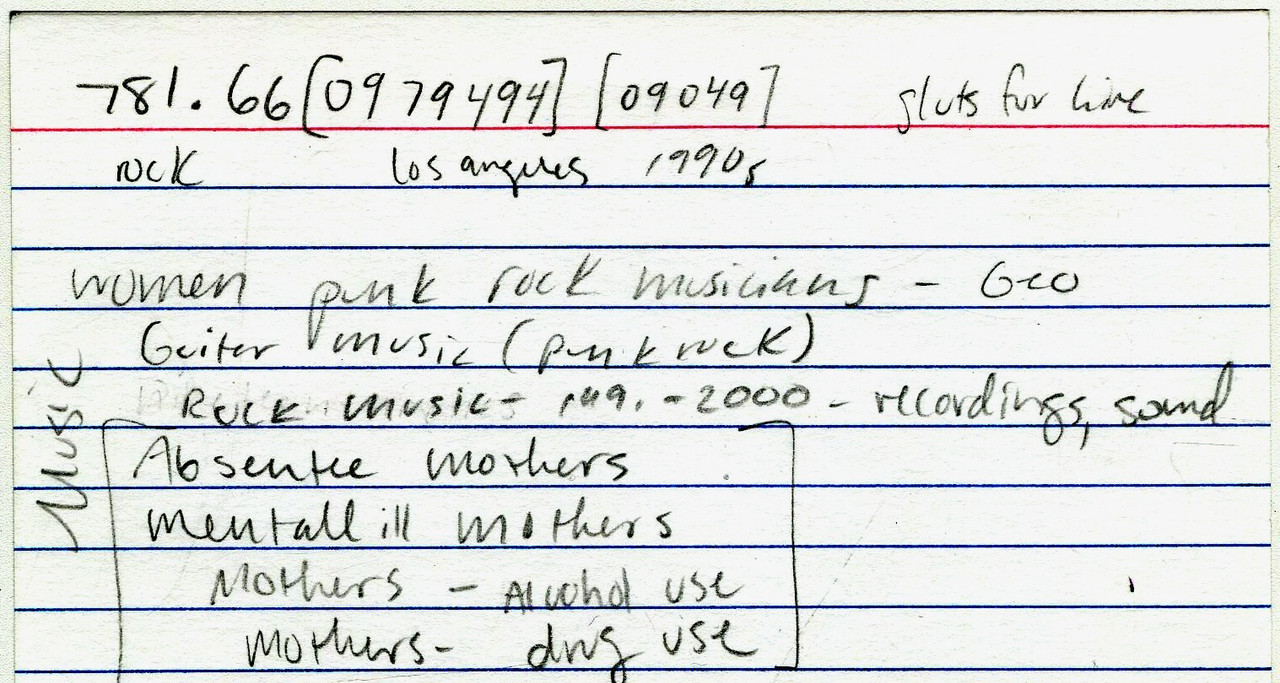 781.66[0979494] [09049] gluts for line
rock los angeles 1990s
women punk rock musicians - Geo
Guitar music (punk rock)
Rock music - - 2000 - recordings, sound
Music
Absentee mothers
mentall ill mothers
Mothers - Alcohol use
Mothers - drug use